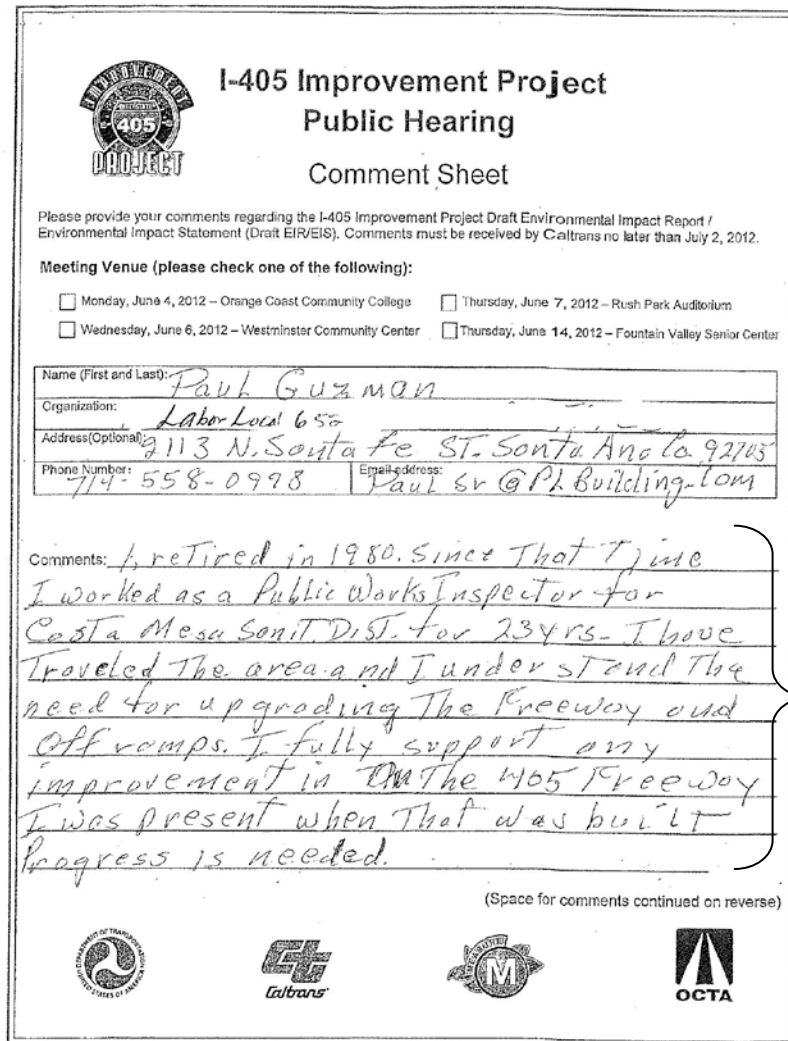 IMPROVEMENT
405
PROJECT
I-405 Improvement Project
Public Hearing
Comment Sheet
Please provide your comments regarding the I-405 Improvement Project Draft Environmental Impact Report /
Environmental Impact Statement (Draft EIR/EIS). Comments must be received by Caltrans no later than July 2, 2012.
Meeting Venue (please check one of the following):
Monday, June 4, 2012 – Orange Coast Community College
Thursday, June 7, 2012 – Rush Park Auditorium
Wednesday, June 6, 2012 – Westminster Community Center
Thursday, June 14, 2012 – Fountain Valley Senior Center
Name (First and Last): Paul Guzman
Organization: Labor Local 652
Address(Optional): 2113 N. Santa Fe ST. Santa Ana Ca. 92705
Phone Number: 714-558-0998
Email address: Paul Sr @ PLBuilding.com
Comments: I, reTired in 1980. Since ThaT Time
I worked as a Public Works Inspector for
CosTa Mesa SaniT. DisT. for 23 yrs- I have
Traveled The area and I undersTand The
need for upgrading The Freeway and
Off ramps. I fully support any
improvement in On The 405 Freeway
I was present when ThaT was builT
Progress is needed.
(Space for comments continued on reverse)
DEPARTMENT OF TRANSPORTATION
UNITED STATES OF AMERICA
Caltrans
MEASURE
M
OCTA